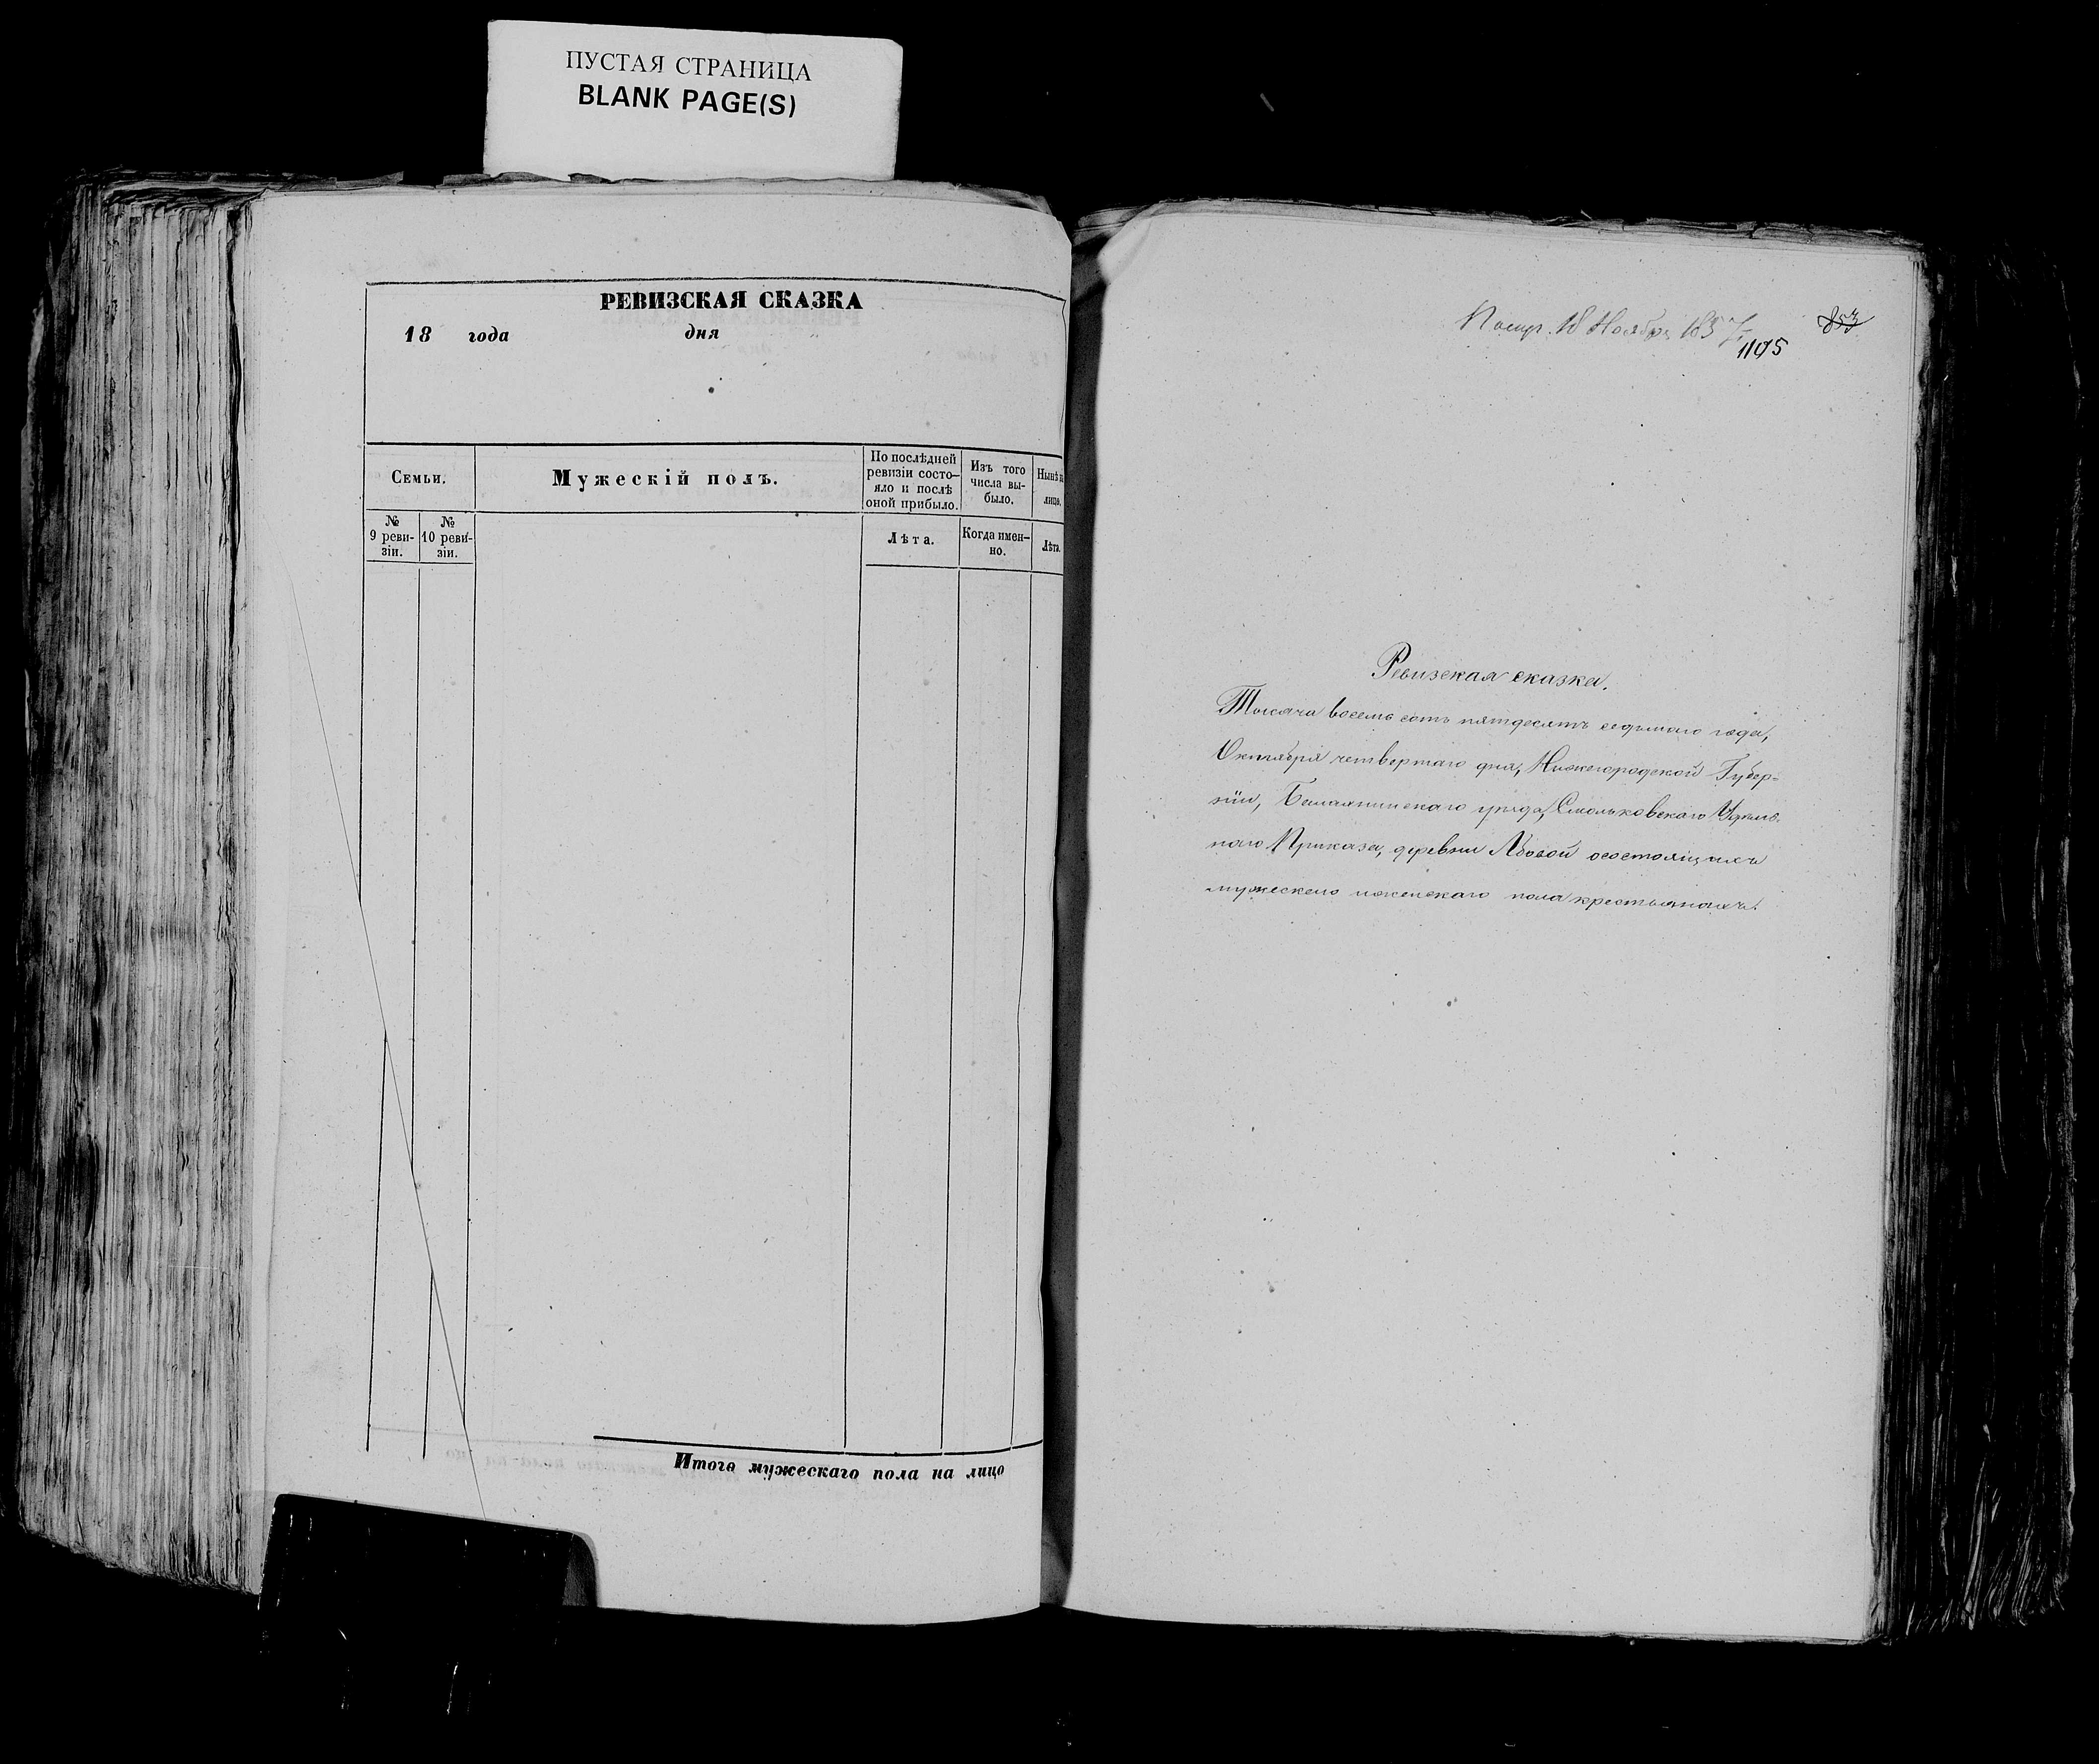 ПУСТАЯ СТРАНИЦА
BLANK PAGE(S)
РЕВИЗСКАЯ СКАЗКА
18 года дня
Семьи.
Мужескій полъ.
По послѣдней
ревизіи состо-
яло и послѣ
оной прибыло.
Изъ того
числа вы-
было.
Нынѣ на
лицо.
№
9 реви-
зіи.
№
10 реви-
зіи.
Лѣта.
Когда имен-
но.
Лѣта.
Итого мужескаго пола на лицо
Получ. 18 Ноября 1857 г.
853
1105
Ревизская сказка.
Тысяча восемь сотъ пятдесятъ седьмаго года,
Октября четвертаго дня, Нижегородской Губер=
ніи, Балахнинскаго уѣзда, Смольковскаго Удѣль-
наго Приказа, деревни осостоящихъ
мужескаго иженскаго пола крестьянахъ.